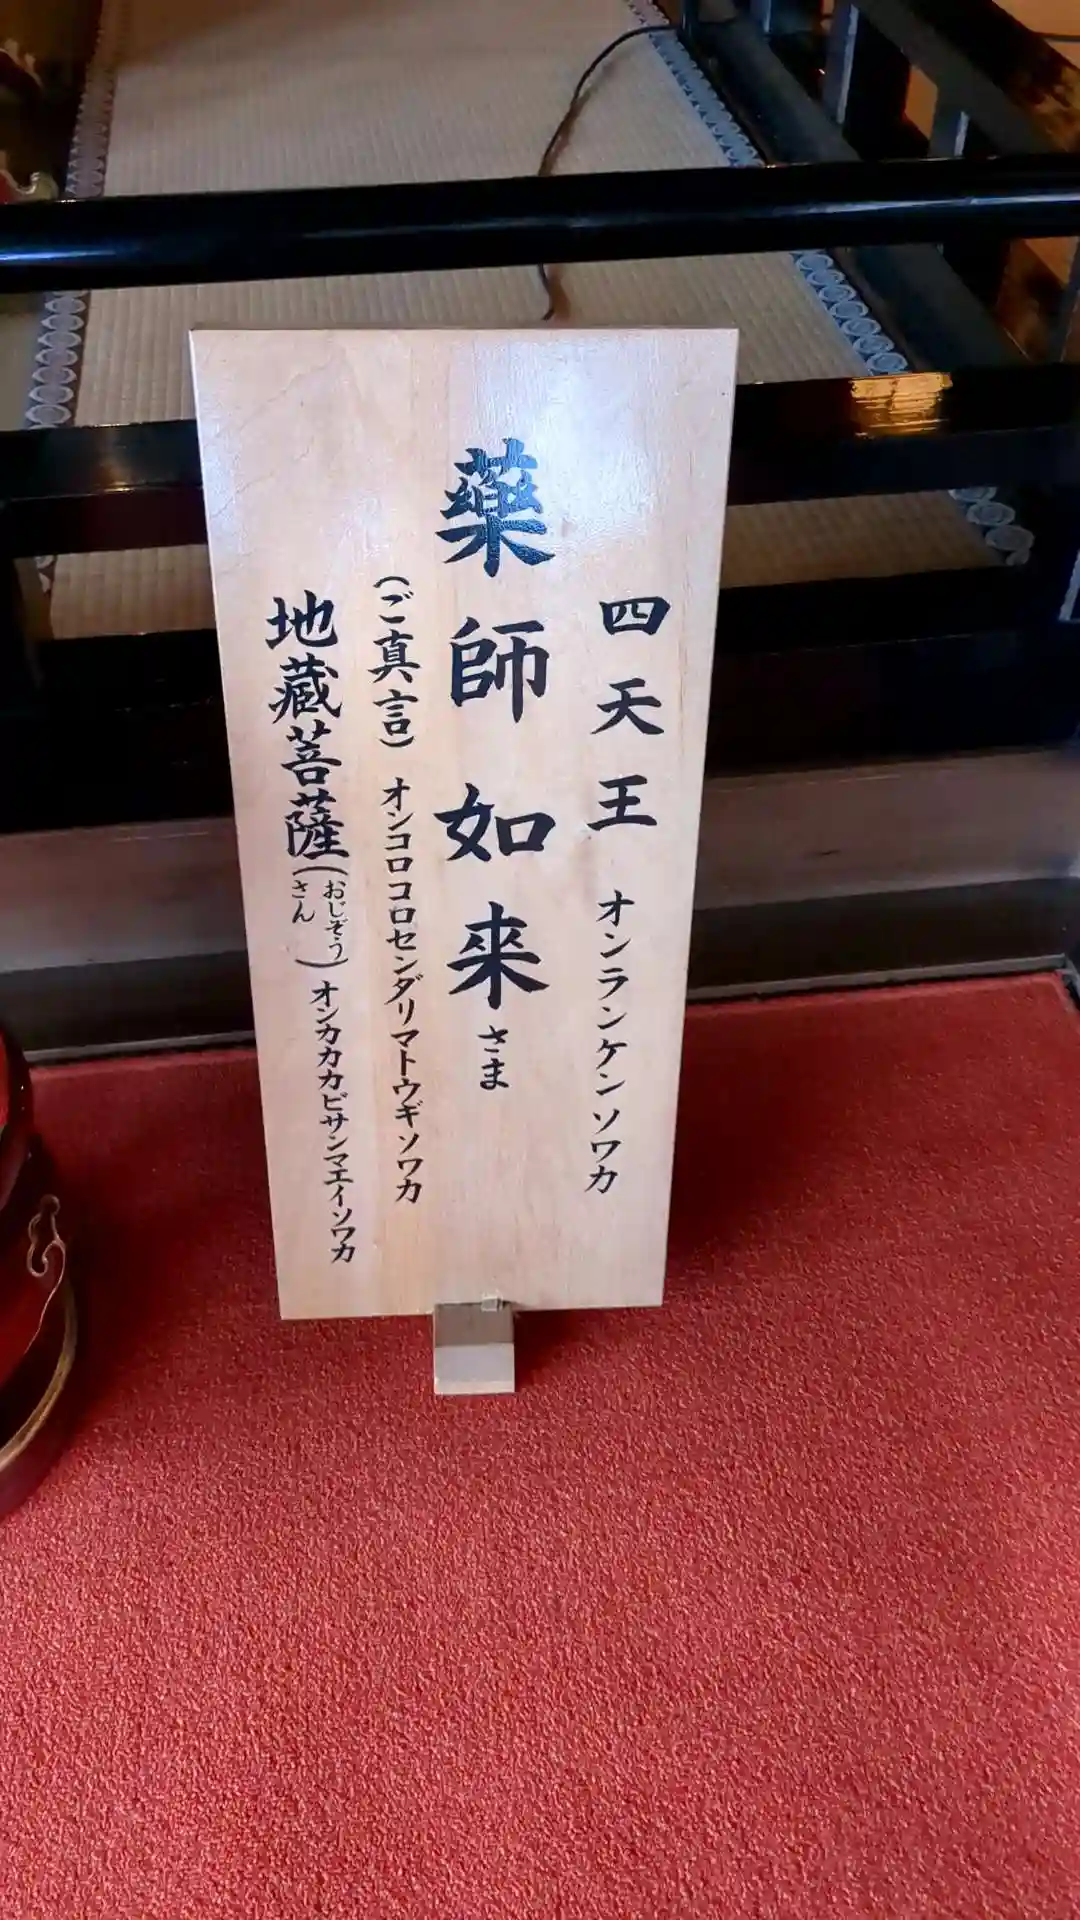 四天王 オンランケンソワカ
藥師如来さま
(ご真言) オンコロコロセンダリマトウギソワカ
地蔵菩薩(おじぞうさん) オンカカカビサンマエイソワカ